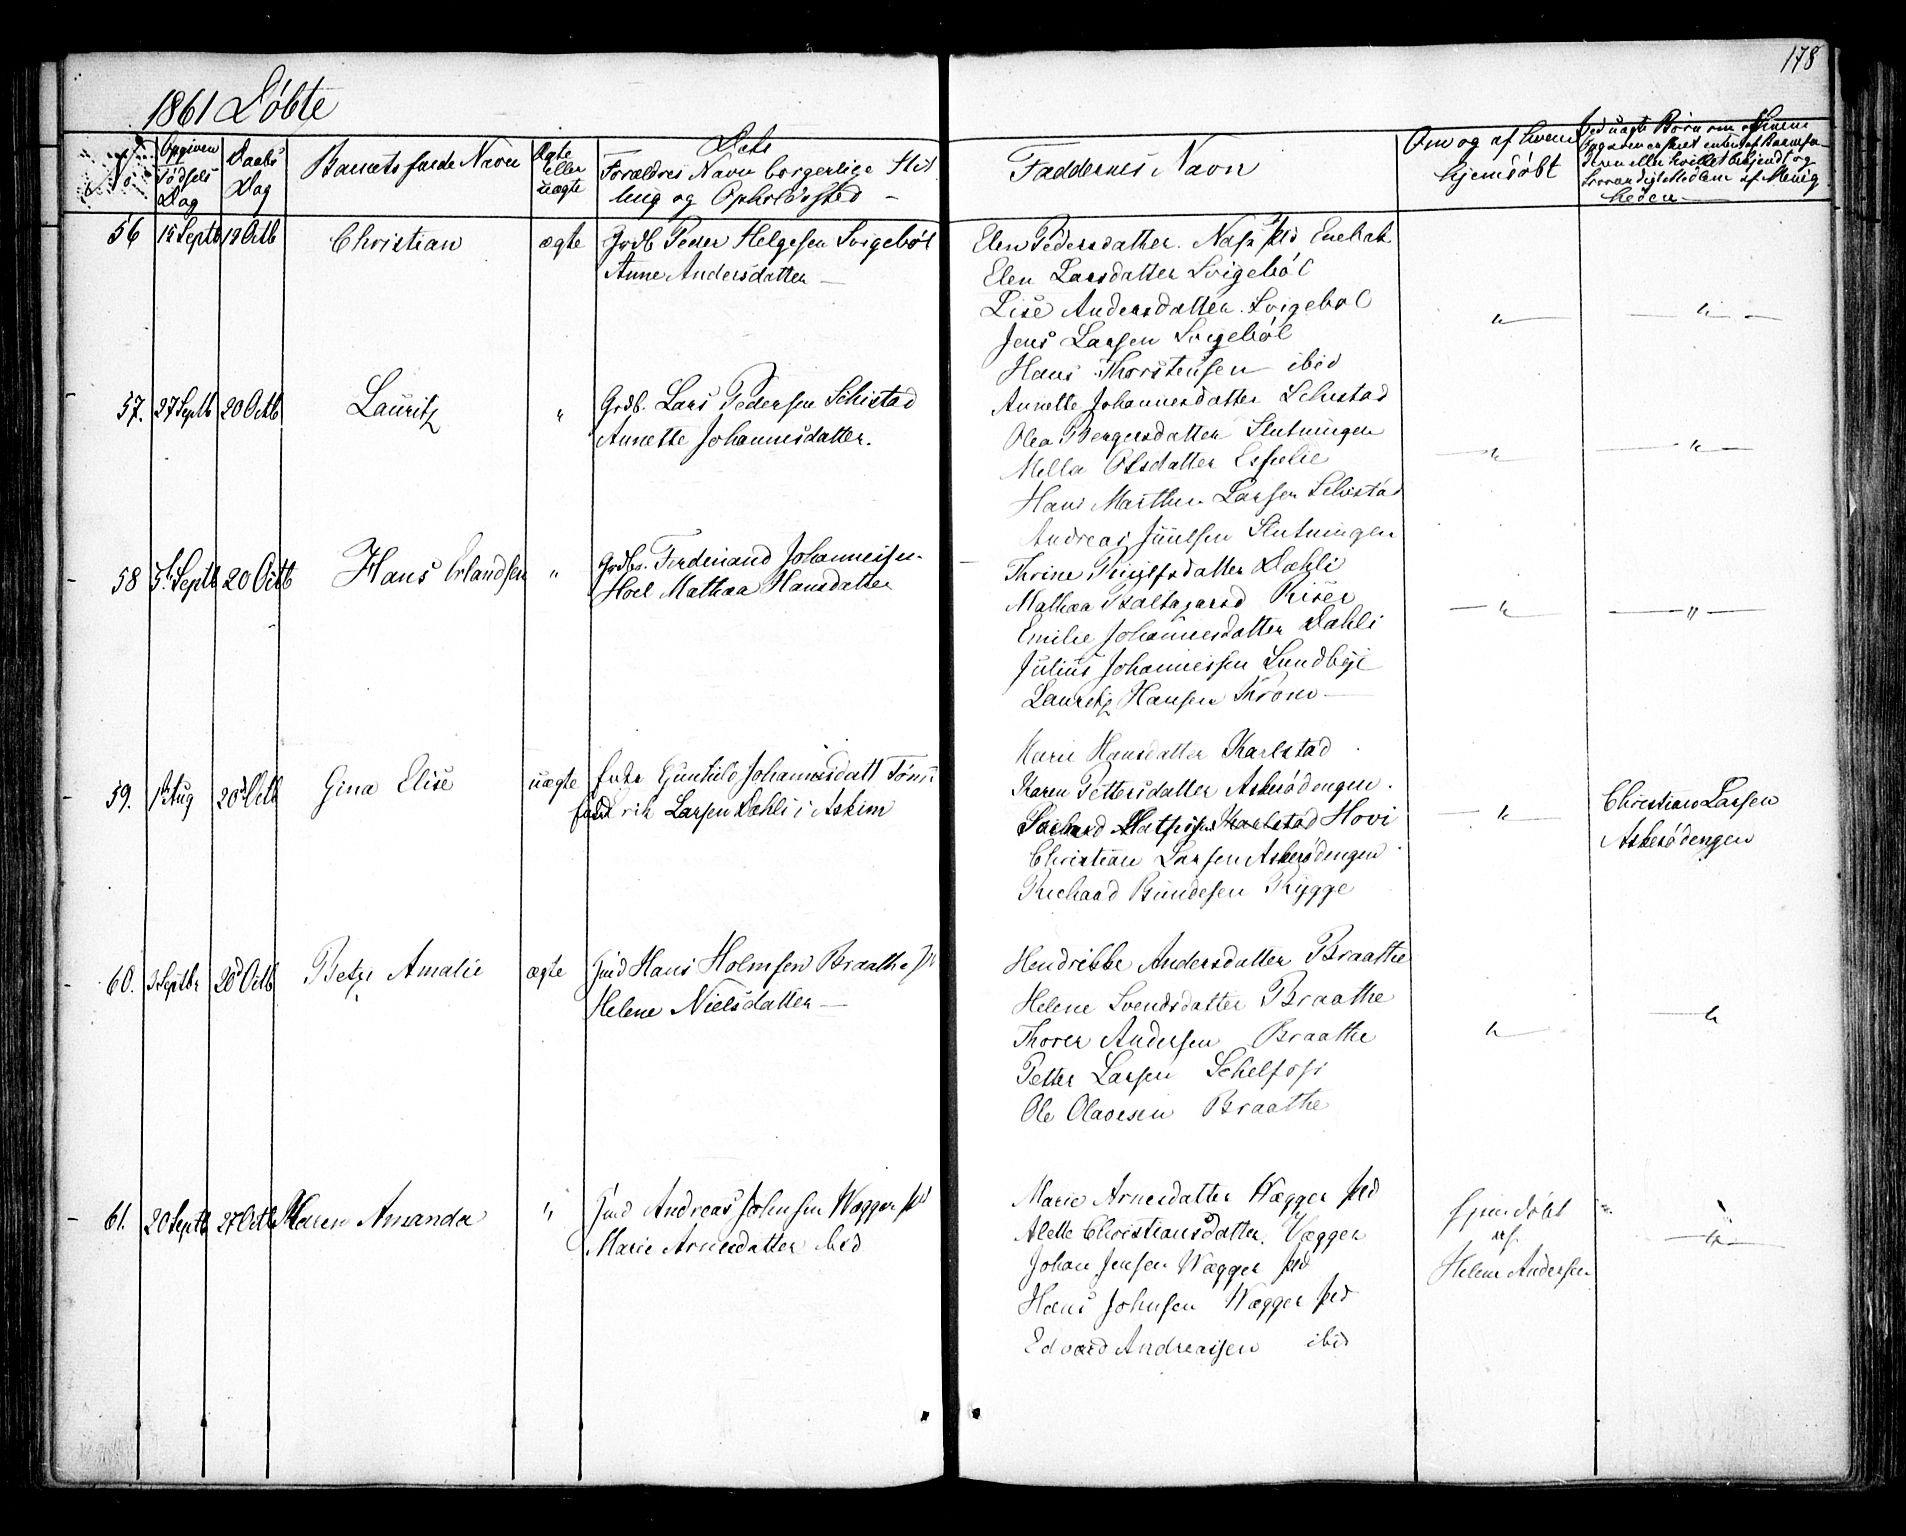 178
1861 Døbte
No
Opgiven Fødsels Dag
Daabs Dag
Barnets fulde Navn
Ægte eller uægte
Dets
Forældres Navn borgerlige Stil
ling og Opholdsted
Faddernes Navn
Om og af hvem
hjemdøbt
56 18 Octb Christian ægte Grdb Peder Helgesen Svigebøl
Anne Andersdatter
Elen Pedersdatter. Enebak
Elen Larsdatter Svigebøl
Lise Andersdatter. Svigebøl
Jens Larsen Svigebøl
Hans Thorstensen ibid
57. 27 Septb 20 Octb Lauritz " Grdb. Lars Pedersen Schistad
Annette Johannesdatter.
Annette Johannesdatter Schistad
Olea Bergersdatter Slutningen
Mella Olsdatter Espelie
Hans Marthin Larsen Schistad
Andreas Juulsen Slutningen
58 5 Septb 20 Octb Hans Erlandsen " Grdb. Ferdinand Johannessen
Hoel Mathæa Hansdatter
Thrine Dæhli
Mathæa Baltazarsd Riser
Emilie Johannesdatter Dahli
Julius Johannessen Lundbye
Lauritz Hansen Throno
59. Aug 20 Octb Gina Elise uægte Gunhild Johannesdatt
Larsen Dæhli i Askim
Karie Hansdatter Karlstad
Karen Pettersdatter Askerødengen.
Karlstad Hovi
Christian Larsen Askerødengen
Richard Bundesen Rygge
Christian Larsen
Askerødengen
60. 3 Septbr 20 Octb Betzi Amalie ægte Gmd Hans Holmsen Braathe
Helene Nielsdatter
Hendrikke Andersdatter Braathe
Helene Svendsdatter Braathe
Thorer Andersen Braathe
Petter Larsen Schelfoss
Ole Olavesen Braathe
61. 20 Septb 27 Octb Karen Amanda " Gmd Andreas Johnsen Wægger pld
Marie Arnesdatter ibid
Marie Arnesdatter Wægger pld
Alette Christiansdatter. Vægger
Johan Jensen Wægger pld
Hans Johnsen Wægger pld
Edvard Andreassen ibid
hjemdøbt
af
Helene Andersen